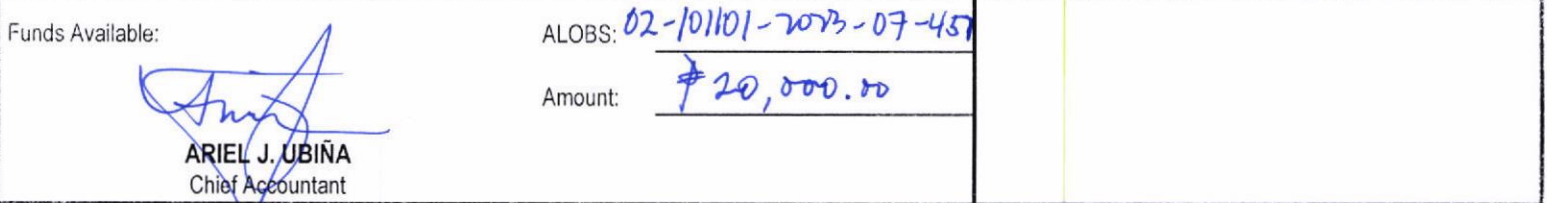 Funds Available:
ALOBS: 02-101101-2023-07-451
Amount: ₱ 20,000.00
ARIEL J. UBIÑA
Chief Accountant